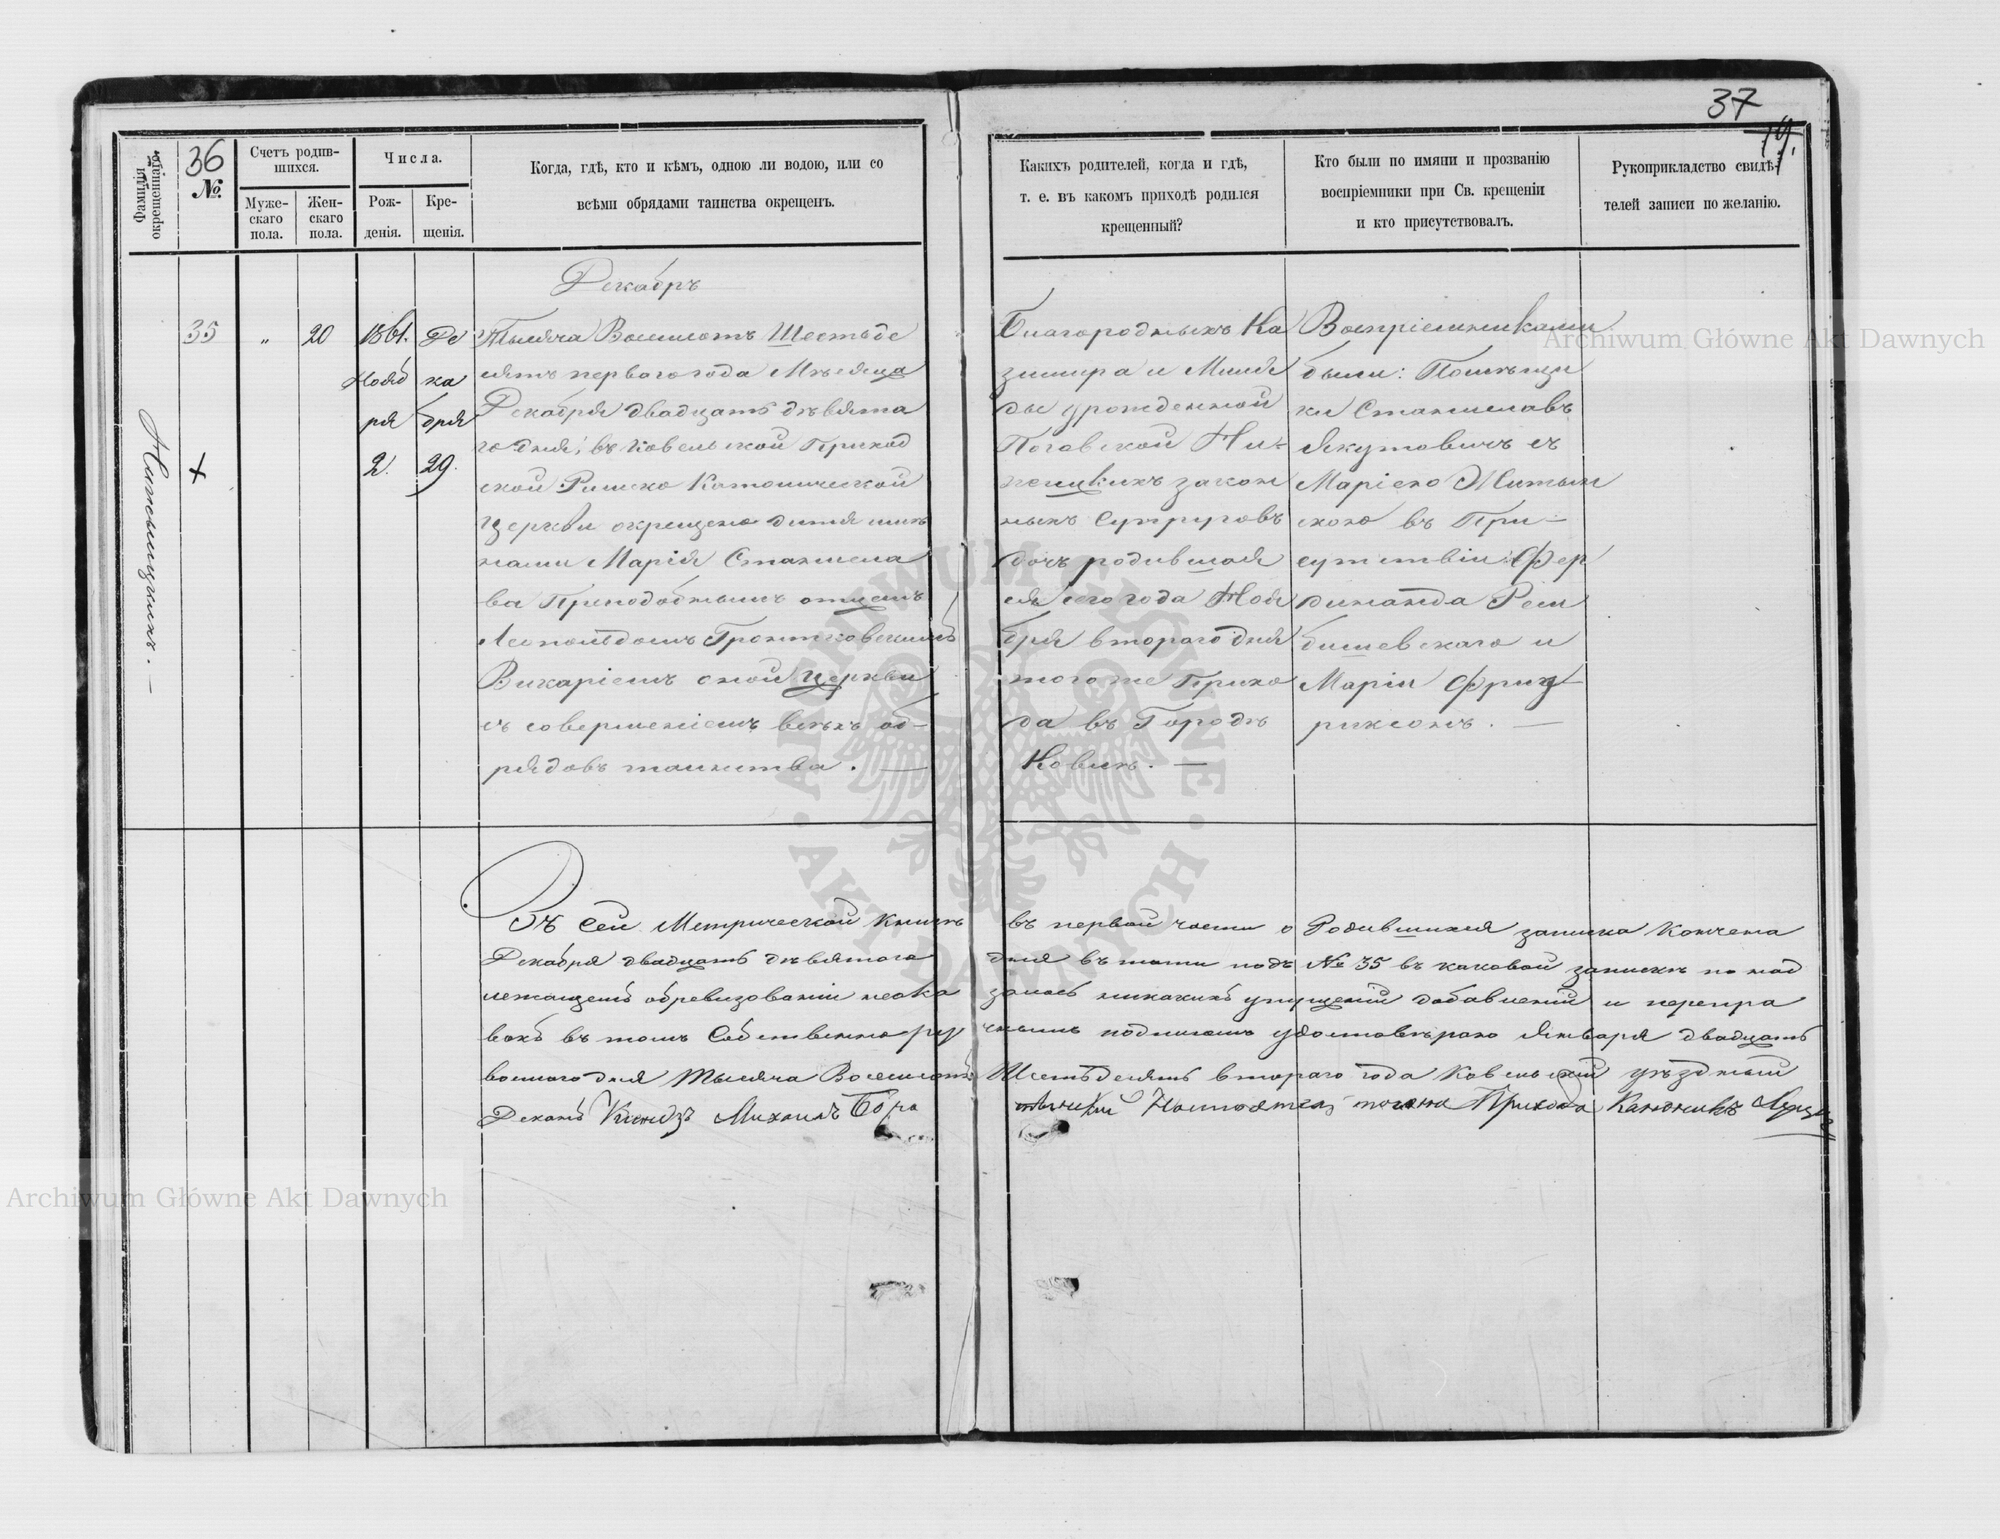 37
19.
36
Фамилія окрещеннаго.
№.
Счетъ родив-
шихся.
Муже-
скаго
пола.
Жен-
скаго
пола.
Числа.
Рож-
денія.
Кре-
щенія.
Когда, гдѣ, кто и кѣмъ, одною ли водою, или со
всѣми обрядами таинства окрещенъ.
Какихъ родителей, когда и гдѣ,
т. е. въ какомъ приходѣ родился
крещенный?
Кто были по имяни и прозванію
воспріемники при Св. крещеніи
и кто присутствовалъ.
Рукоприкладство свидѣ-
телей записи по желанію.
35
"
20
1861.
Нояб
ря
2.
Де
ка
бря
29.
Декабрь
Тысяча Восемсотъ Шестьде
сятъ перваго года Мѣсяца
Декабря двадцать девята
го дня, въ Ковельской Приход
ской Римско Католической
Церкви окрещено дитя име
нами Марія Станисла
ва Преподобнымъ отцемъ
Леопольдомъ
Викаріемъ оной Церкви
съ совершеніемъ всехъ об-
рядовъ таинства. —
Благородныхъ Ка
зимира и Мильг
ды урожденной
законныхъ Супруговъ
дочь родившая
ся сего года Нояб
бря втораго дня
того же Прихо
да въ Городѣ
Ковлѣ. —
Воспріемниками
были: Помѣщи
ки Станиславъ
Якутовичъ съ
Маріею Житын
скою въ При-
сутствіи Фер
динанда Рем
бишевскаго и
Маріи Фрид
риксонъ. —
Въ сей Метрической книгѣ въ первой части о Родившихся записка кончена
Декабря двадцать девятаго дня въ поти подъ № 35 въ каковой запискѣ по над
лежащемъ обревизованіи неока залось никакихъ упущеній добавленій и перепра
вокъ въ томъ Собственно ру чнымъ подписомъ удостовѣряю Января двадцать
восмаго дня Тысяча Восемсотъ Шестьдесятъ втораго года Ковельскій уѣздный
Деканъ Ксендзъ Михаилъ Прихода Каноникъ
Archiwum Główne Akt Dawnych
Archiwum Główne Akt Dawnych
ARCHIWUM GŁÓWNE AKT DAWNYCH